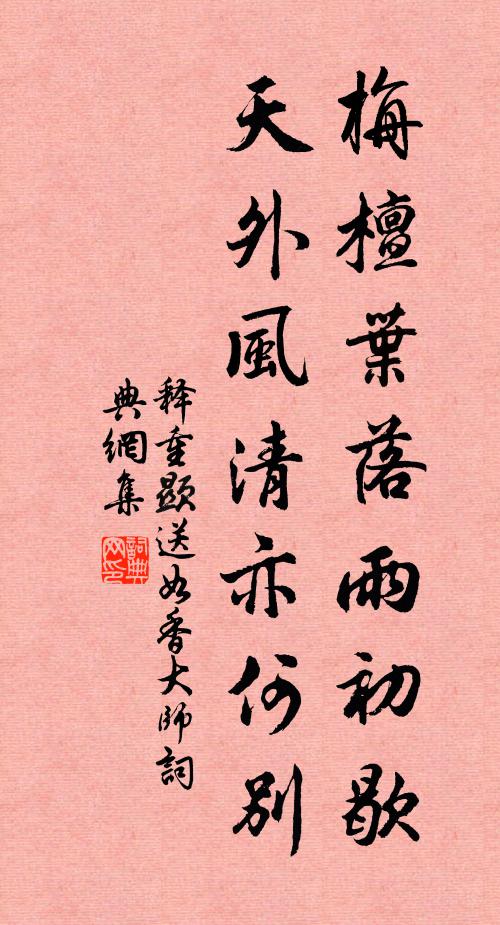 梅檀葉落雨初歇
天外風清亦何別
释重顯送如香大師詞
典網集
詞典網印